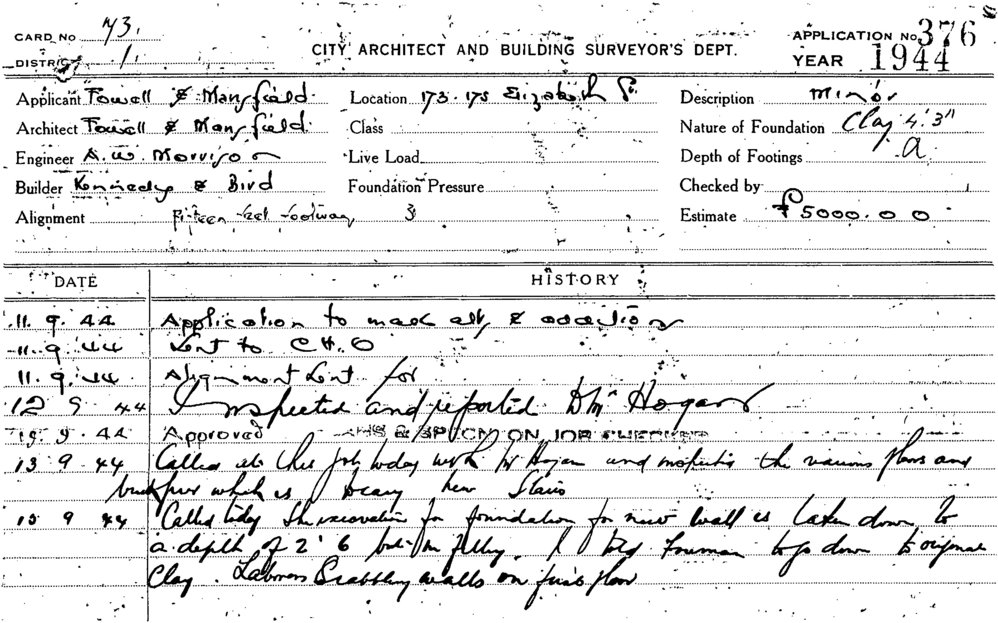 CARD No 73.
APPLICATION No. 376
DISTRICT 1.
CITY ARCHITECT AND BUILDING SURVEYOR'S DEPT.
YEAR 1944
Applicant Fowell & Mansfield.
Location 173-175 Elizabeth St.
Description minor
Architect Fowell & Mansfield.
Class
Nature of Foundation Clay 4'3"
Engineer A.W. Morrison
Live Load
Depth of Footings a
Builder Kennedy & Bird
Foundation Pressure
Checked by
Alignment Fifteen feet footway 3
Estimate £5000.00
DATE
HISTORY
11.9.44 Application to make alt, & addition
11.9.44 Sent to C.H.O
11.9.44 Alignment Sent for
12 9 44 I Inspected and reported Hogan
9.44 Approved & SPECN ON JOB CHECKED
13.9.44 Called at this job today with Mr Hogan and the various floors and
which is new Stairs
15 9 44 Called today The excavation for foundation for new wall is taken down to
a depth of 2'6 but in filling. I told Foreman to go down to original
Clay. walls on first floor